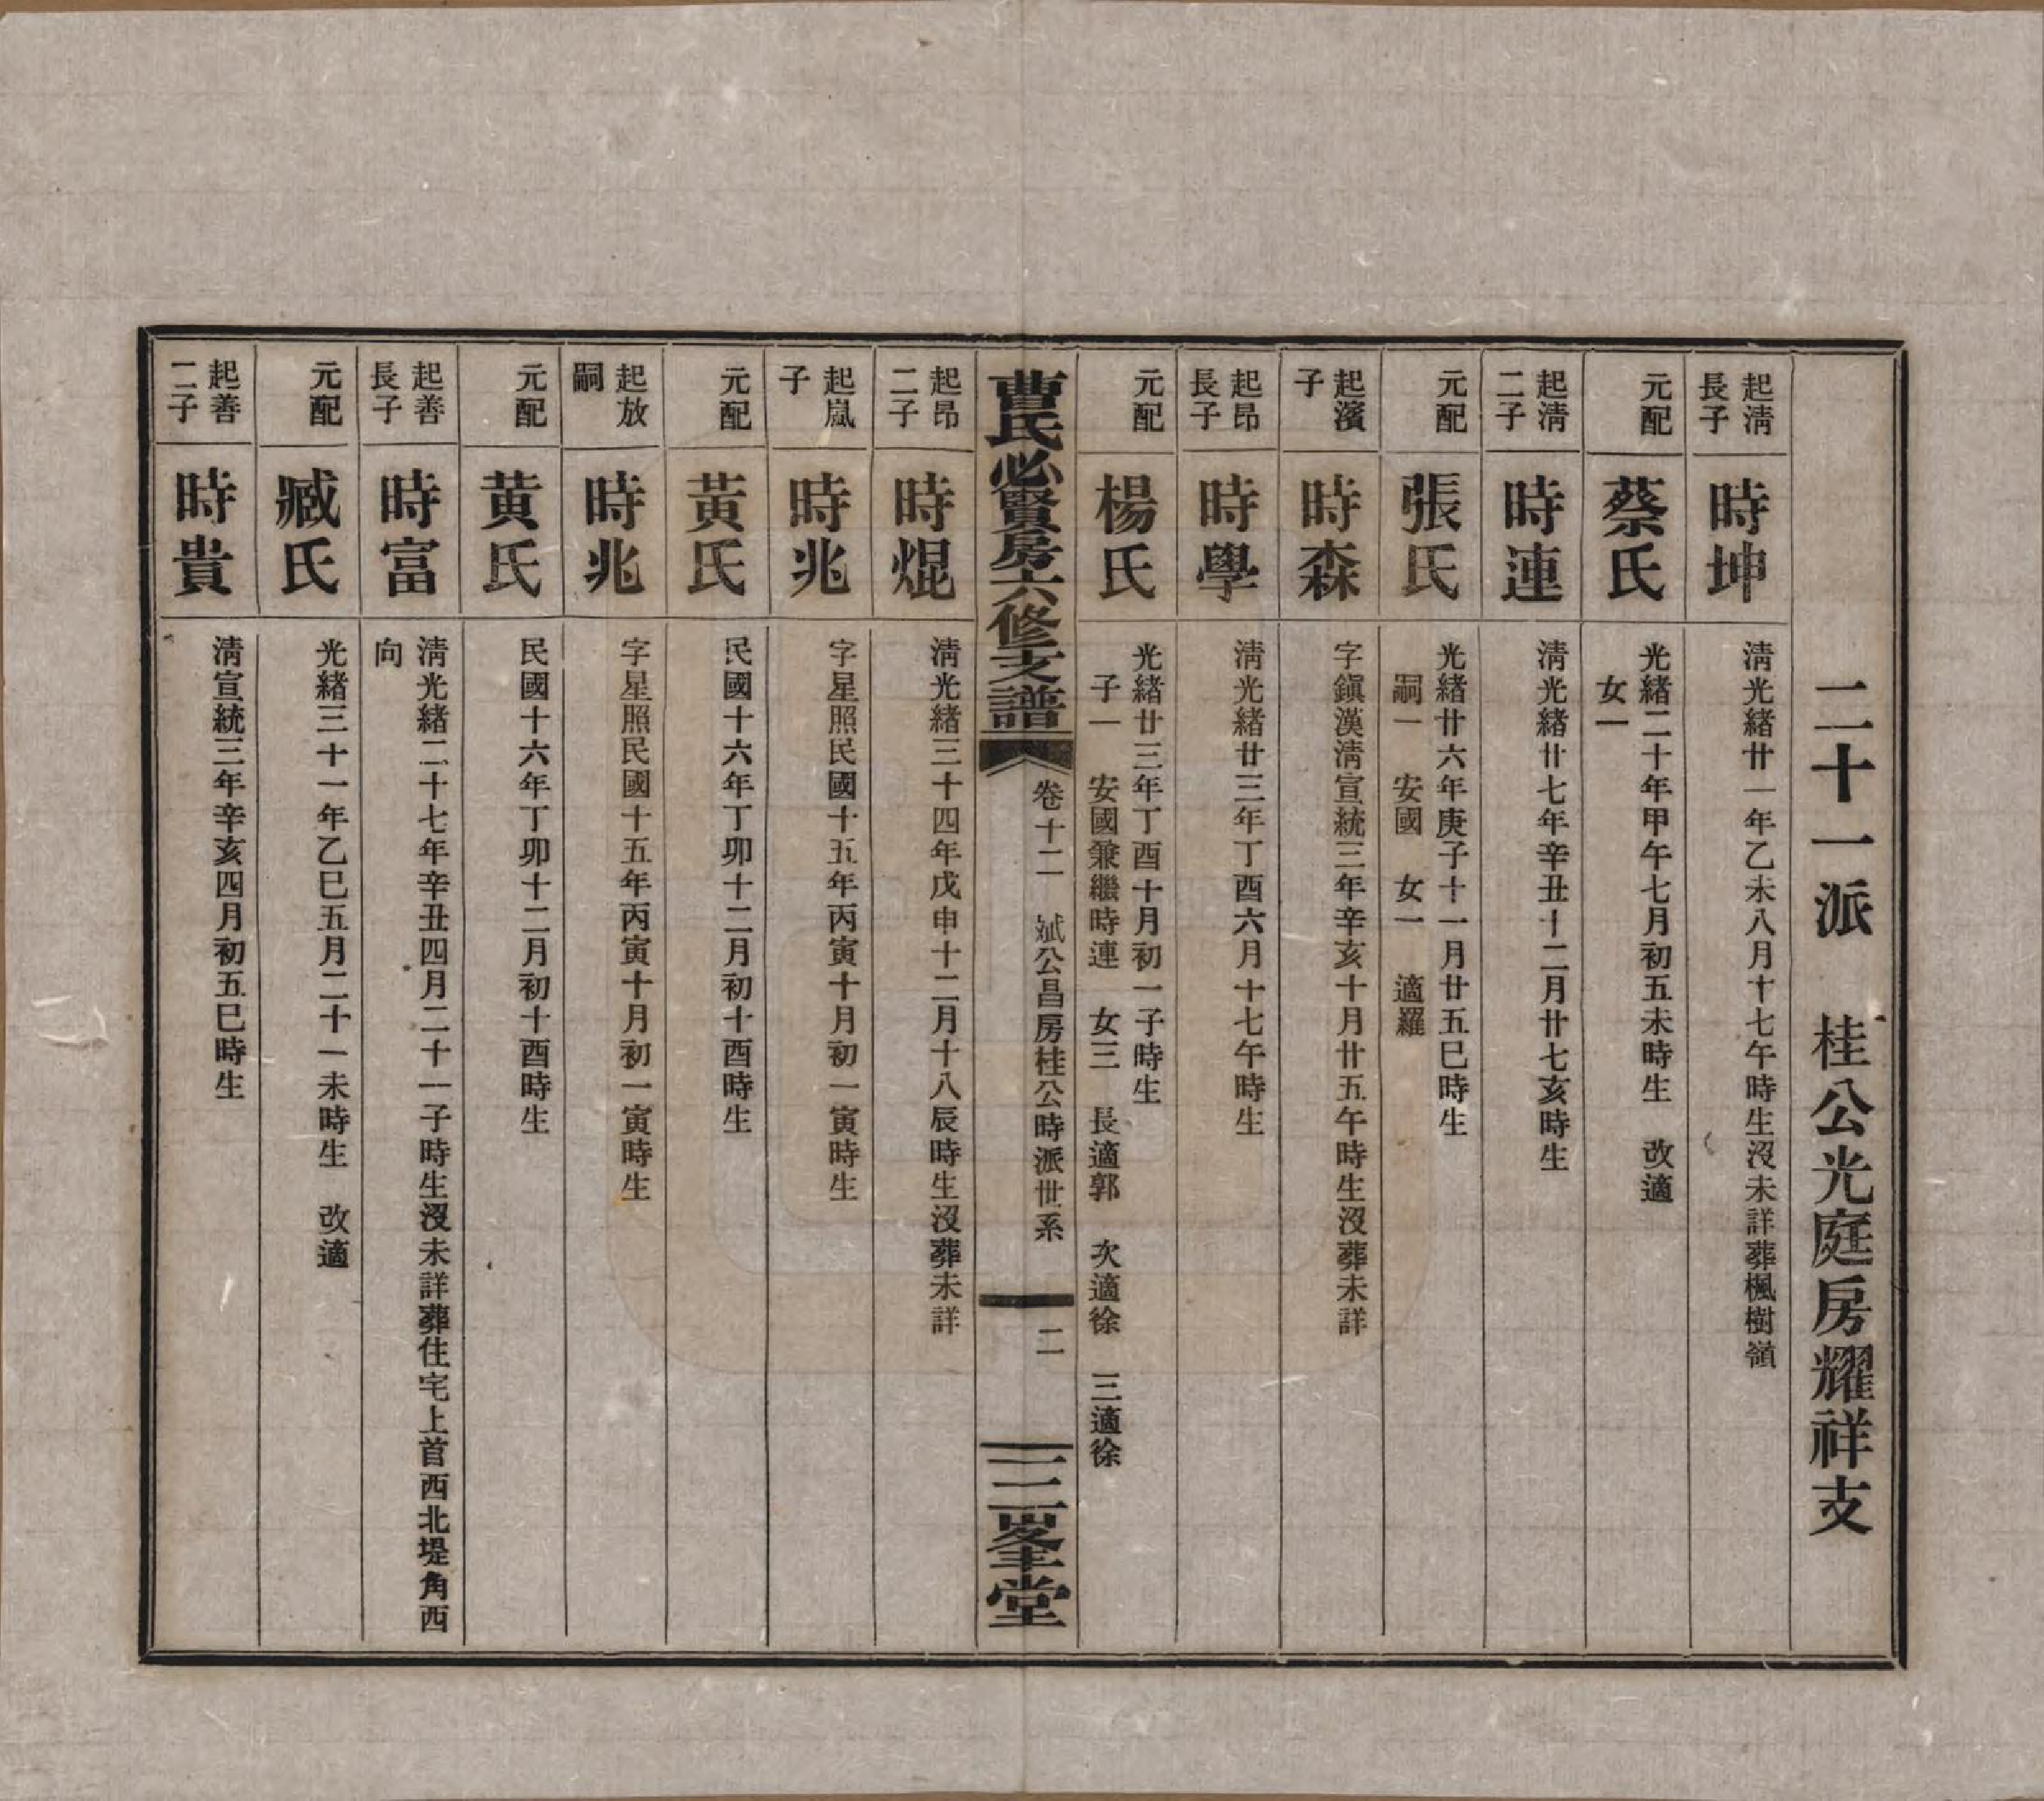 二十一派　桂公光庭房耀祥支
起淸長子
時坤
淸光緒廿一年乙未八月十七午時生沒未詳葬楓樹嶺
元配
蔡氏
光緒二十年甲午七月初五未時生　改適
女一
起淸二子
時連
淸光緒廿七年辛丑十二月廿七亥時生
元配
張氏
光緒廿六年庚子十一月廿五巳時生
嗣一　安國　女一　適羅
起濱子
時森
字鎭漢淸宣統三年辛亥十月廿五午時生沒葬未詳
起昂長子
時學
淸光緒廿三年丁酉六月十七午時生
元配
楊氏
光緒廿三年丁酉十月初一子時生
子一　安國兼繼時連　女三　長適郭　次適徐　三適徐
曹氏必賢房六修支譜
卷十二　斌公昌房桂公時派世系
二
三峯堂
起昂二子
時焜
淸光緒三十四年戊申十二月十八辰時生沒葬未詳
起嵐子
時兆
字星照民國十五年丙寅十月初一寅時生
元配
黃氏
民國十六年丁卯十二月初十酉時生
起放嗣
時兆
字星照民國十五年丙寅十月初一寅時生
元配
黃氏
民國十六年丁卯十二月初十酉時生
起善長子
時富
淸光緒二十七年辛丑四月二十一子時生沒未詳葬住宅上首西北堤角西
向
元配
臧氏
光緒三十一年乙巳五月二十一未時生　改適
起善二子
時貴
淸宣統三年辛亥四月初五巳時生